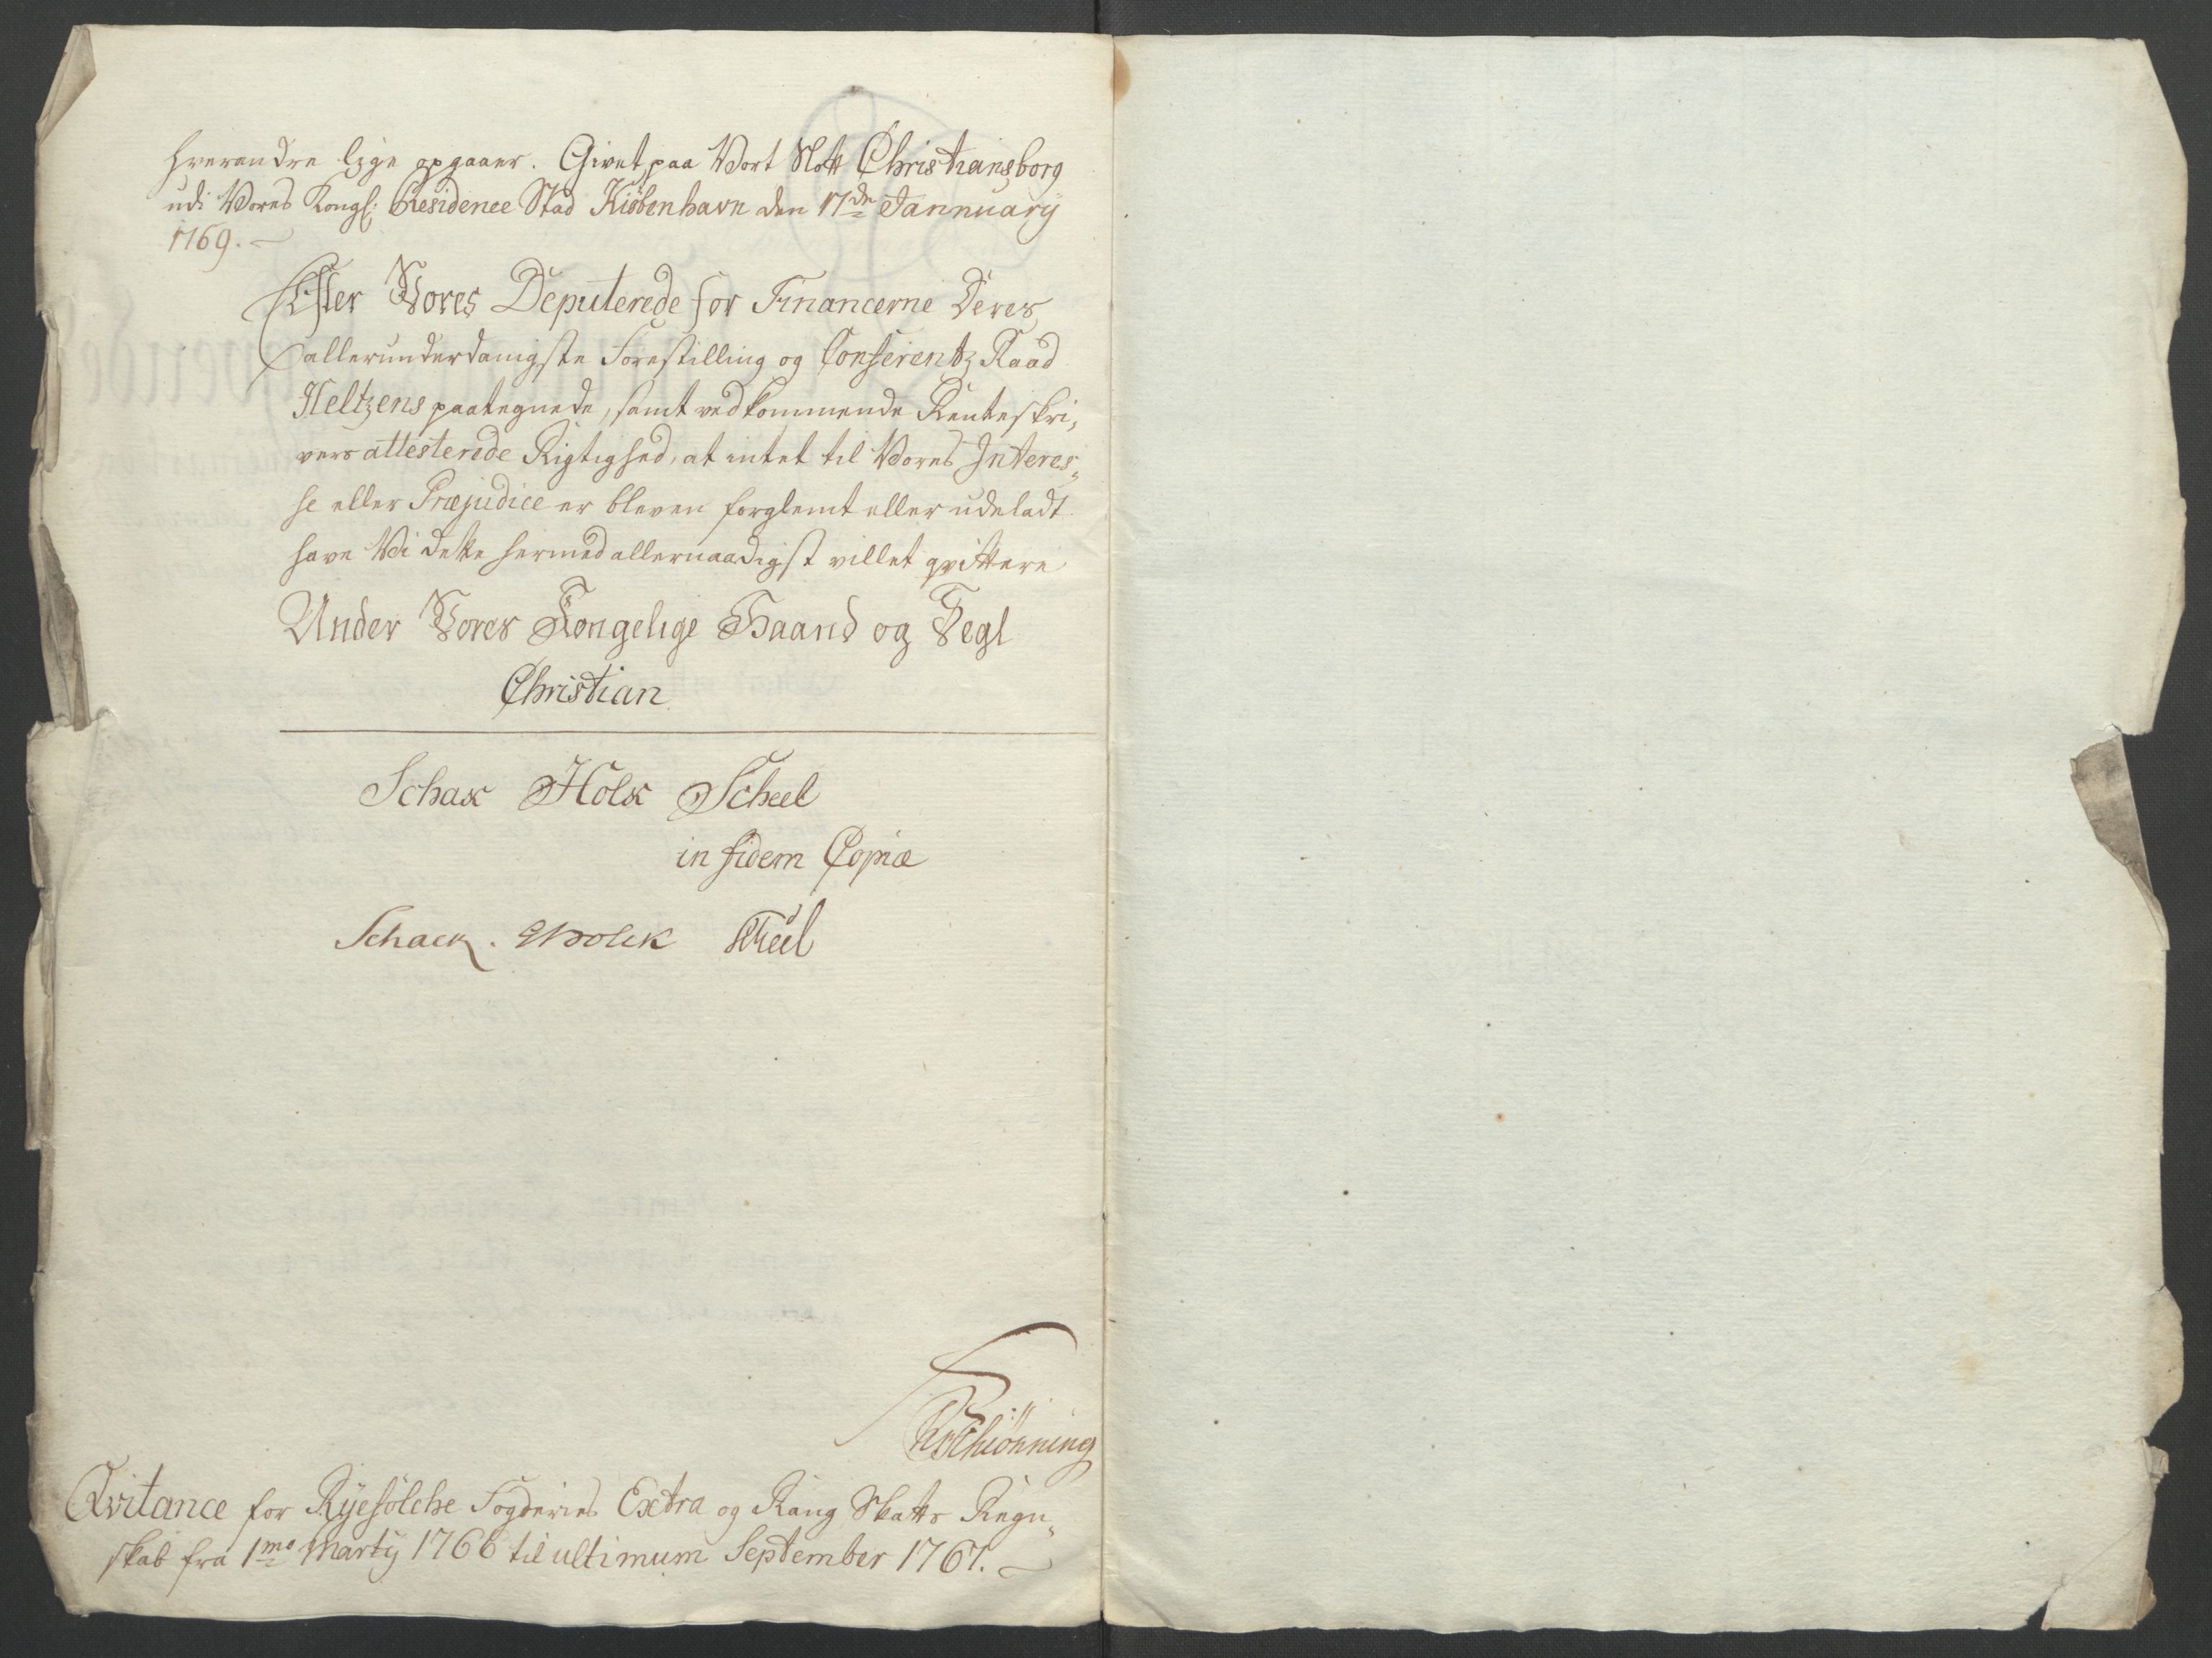 hverandre lige opgaaer. Givet paa Vort Slott Christiansborg
udi Vores Kongl: Residence Stad Kiöbenhavn den 17de Jannuary
1769.
Efter Vores Deputerede for Financerne Deres
allerunderdanigste Forestilling og Conferentz Raad
Heltzens paategnede, samt vedkommende Renteskri,
vers attesterede Rigtighed, at intet til Vores Interes„
se eller Præjudice er bleven forglemt eller udeladt
have Vi dette hermed allernaadigst villet qvittere
Under Vores Kongelige Haand og Segl
Christian
Schak Holk Scheel
in fidem Copiæ
Schack. Holck Scheel
Schiönning
Qvitance for Ryefölche Fogderies Extra og Rang Skatts Regn„
skab fra 1mo Marty 1766 til ultimum September 1767.